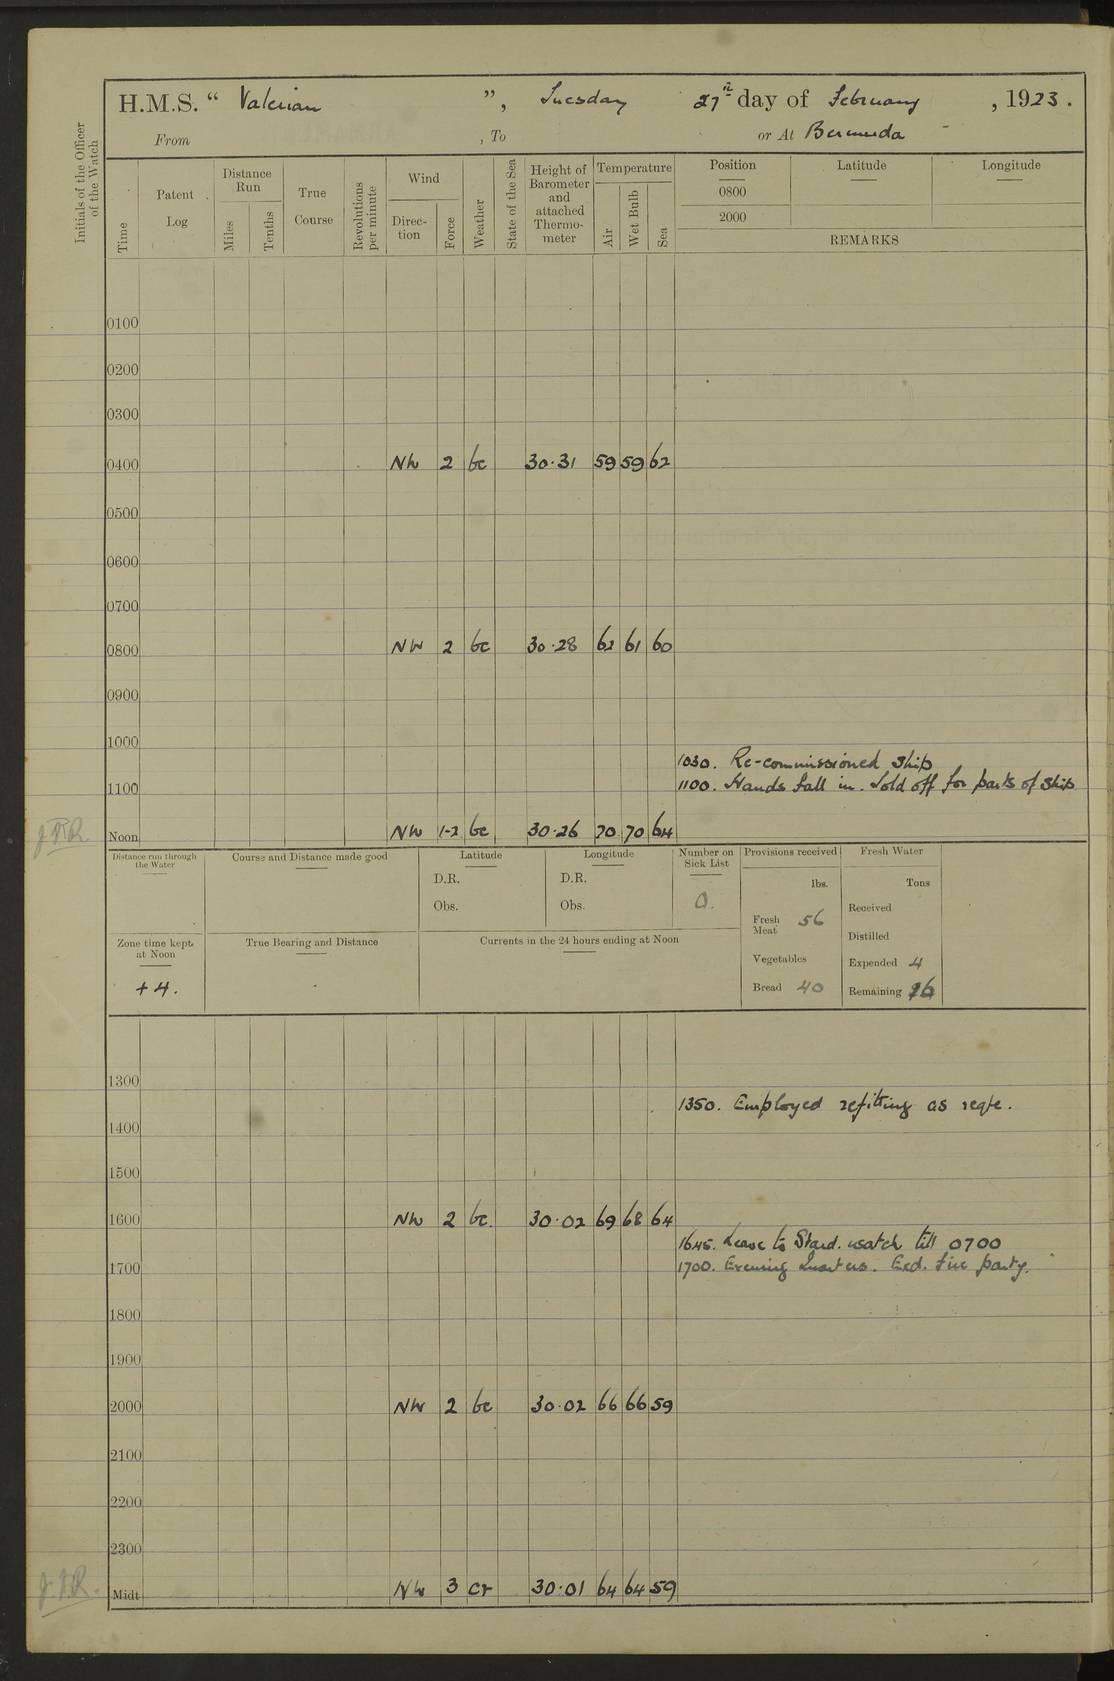 H.M.S. “ Valerian ”, Tuesday 27th day of February , 1923.
From , To or At Bermuda -
Initials of the Officer of the Watch
Time
Patent Log
Distance Run
Miles
Tenths
True Course
Revolutions per minute
Wind
Direc-tion
Force
Weather
State of the Sea
Height of Barometer and attached Thermo-meter
Temperature
Air
Wet Bulb
Sea
Position Latitude Longitude
0800
2000
REMARKS
0100
0200
0300
0400 NW 2 bc 30.31 59 59 62
0500
0600
0700
0800 NW 2 bc 30.28 62 61 60
0900
1000
1030. Re-commissioned Ship
1100 1100. Hands fall in. Told off for parts of Ship
Noon NW 1-2 bc 30.26 70 70 64
Distance run through the Water
Course and Distance made good
Latitude
D.R.
Obs.
Longitude
D.R.
Obs.
Number on Sick List
0.
Provisions received
lbs.
Fresh Meat 56
Vegetables
Bread 40
Fresh Water
Tons
Received
Distilled
Expended 4
Remaining 26
Zone time kept at Noon
+ 4.
True Bearing and Distance
Currents in the 24 hours ending at Noon
1300
1350. Employed refitting as reqte.
1400
1500
1600 NW 2 bc. 30.02 69 68 64
1645. Leave to Stard. watch till 0700
1700 1700. Evening Quarters. Exd. fire party.
1800
1900
2000 NW 2 bc 30.02 66 66 59
2100
2200
2300
Midt NW 3 cr 30.01 64 64 59